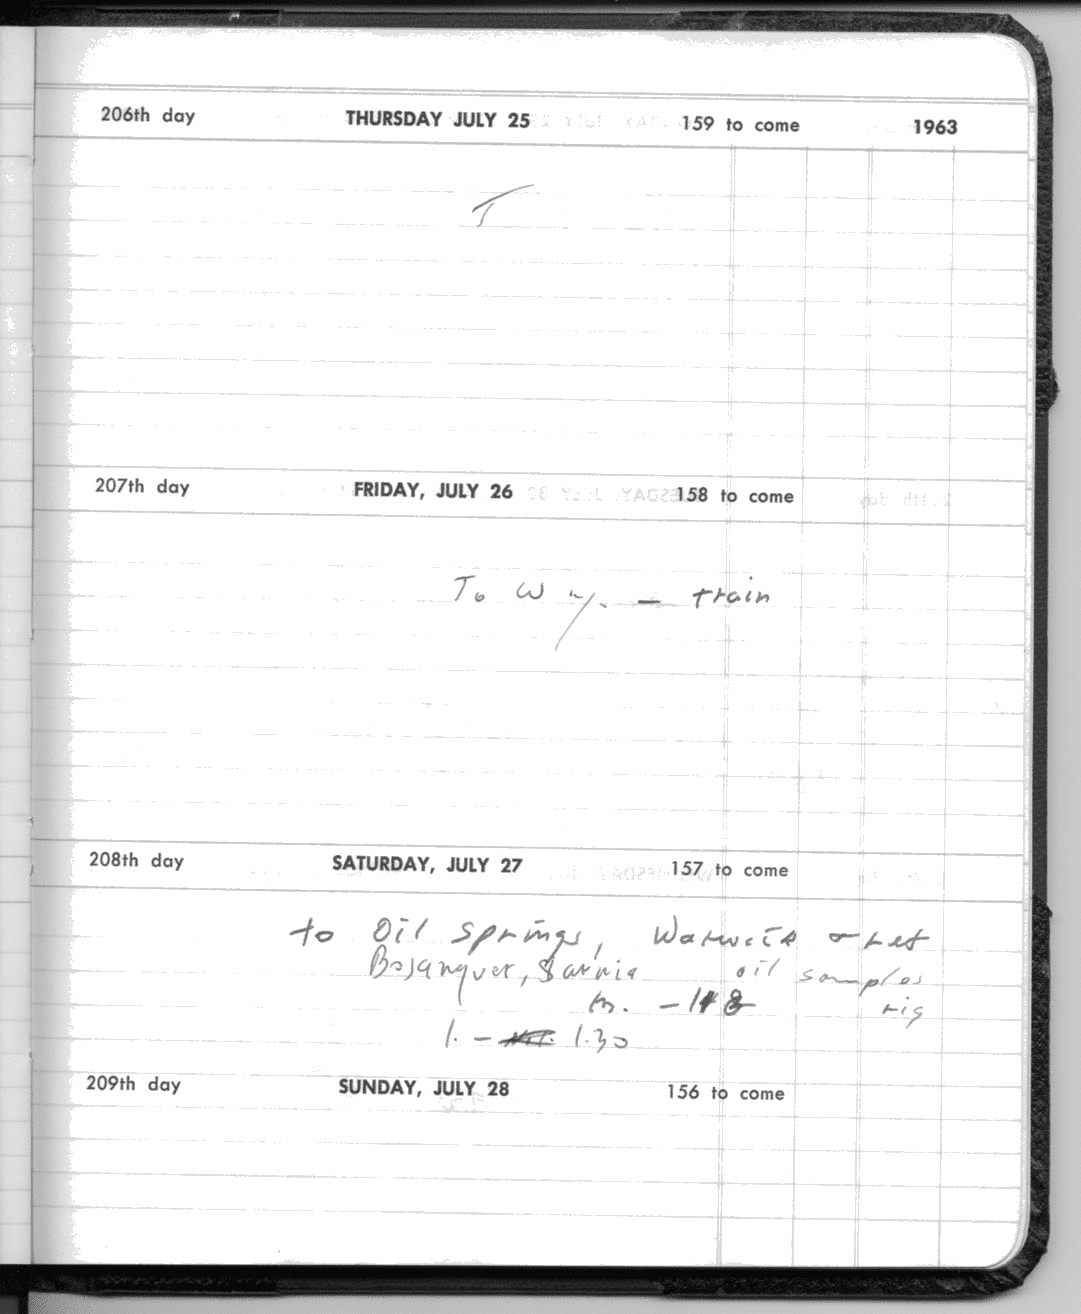 206th day THURSDAY JULY 25 159 to come 1963
T
207th day FRIDAY, JULY 26 158 to come
To Wy. — train
208th day SATURDAY, JULY 27 157 to come
to Oil Springs, Warwick + ret
Bosanquet, Sarnia oil samples
m. — 148 rig
l. — 1.30
209th day SUNDAY, JULY 28 156 to come